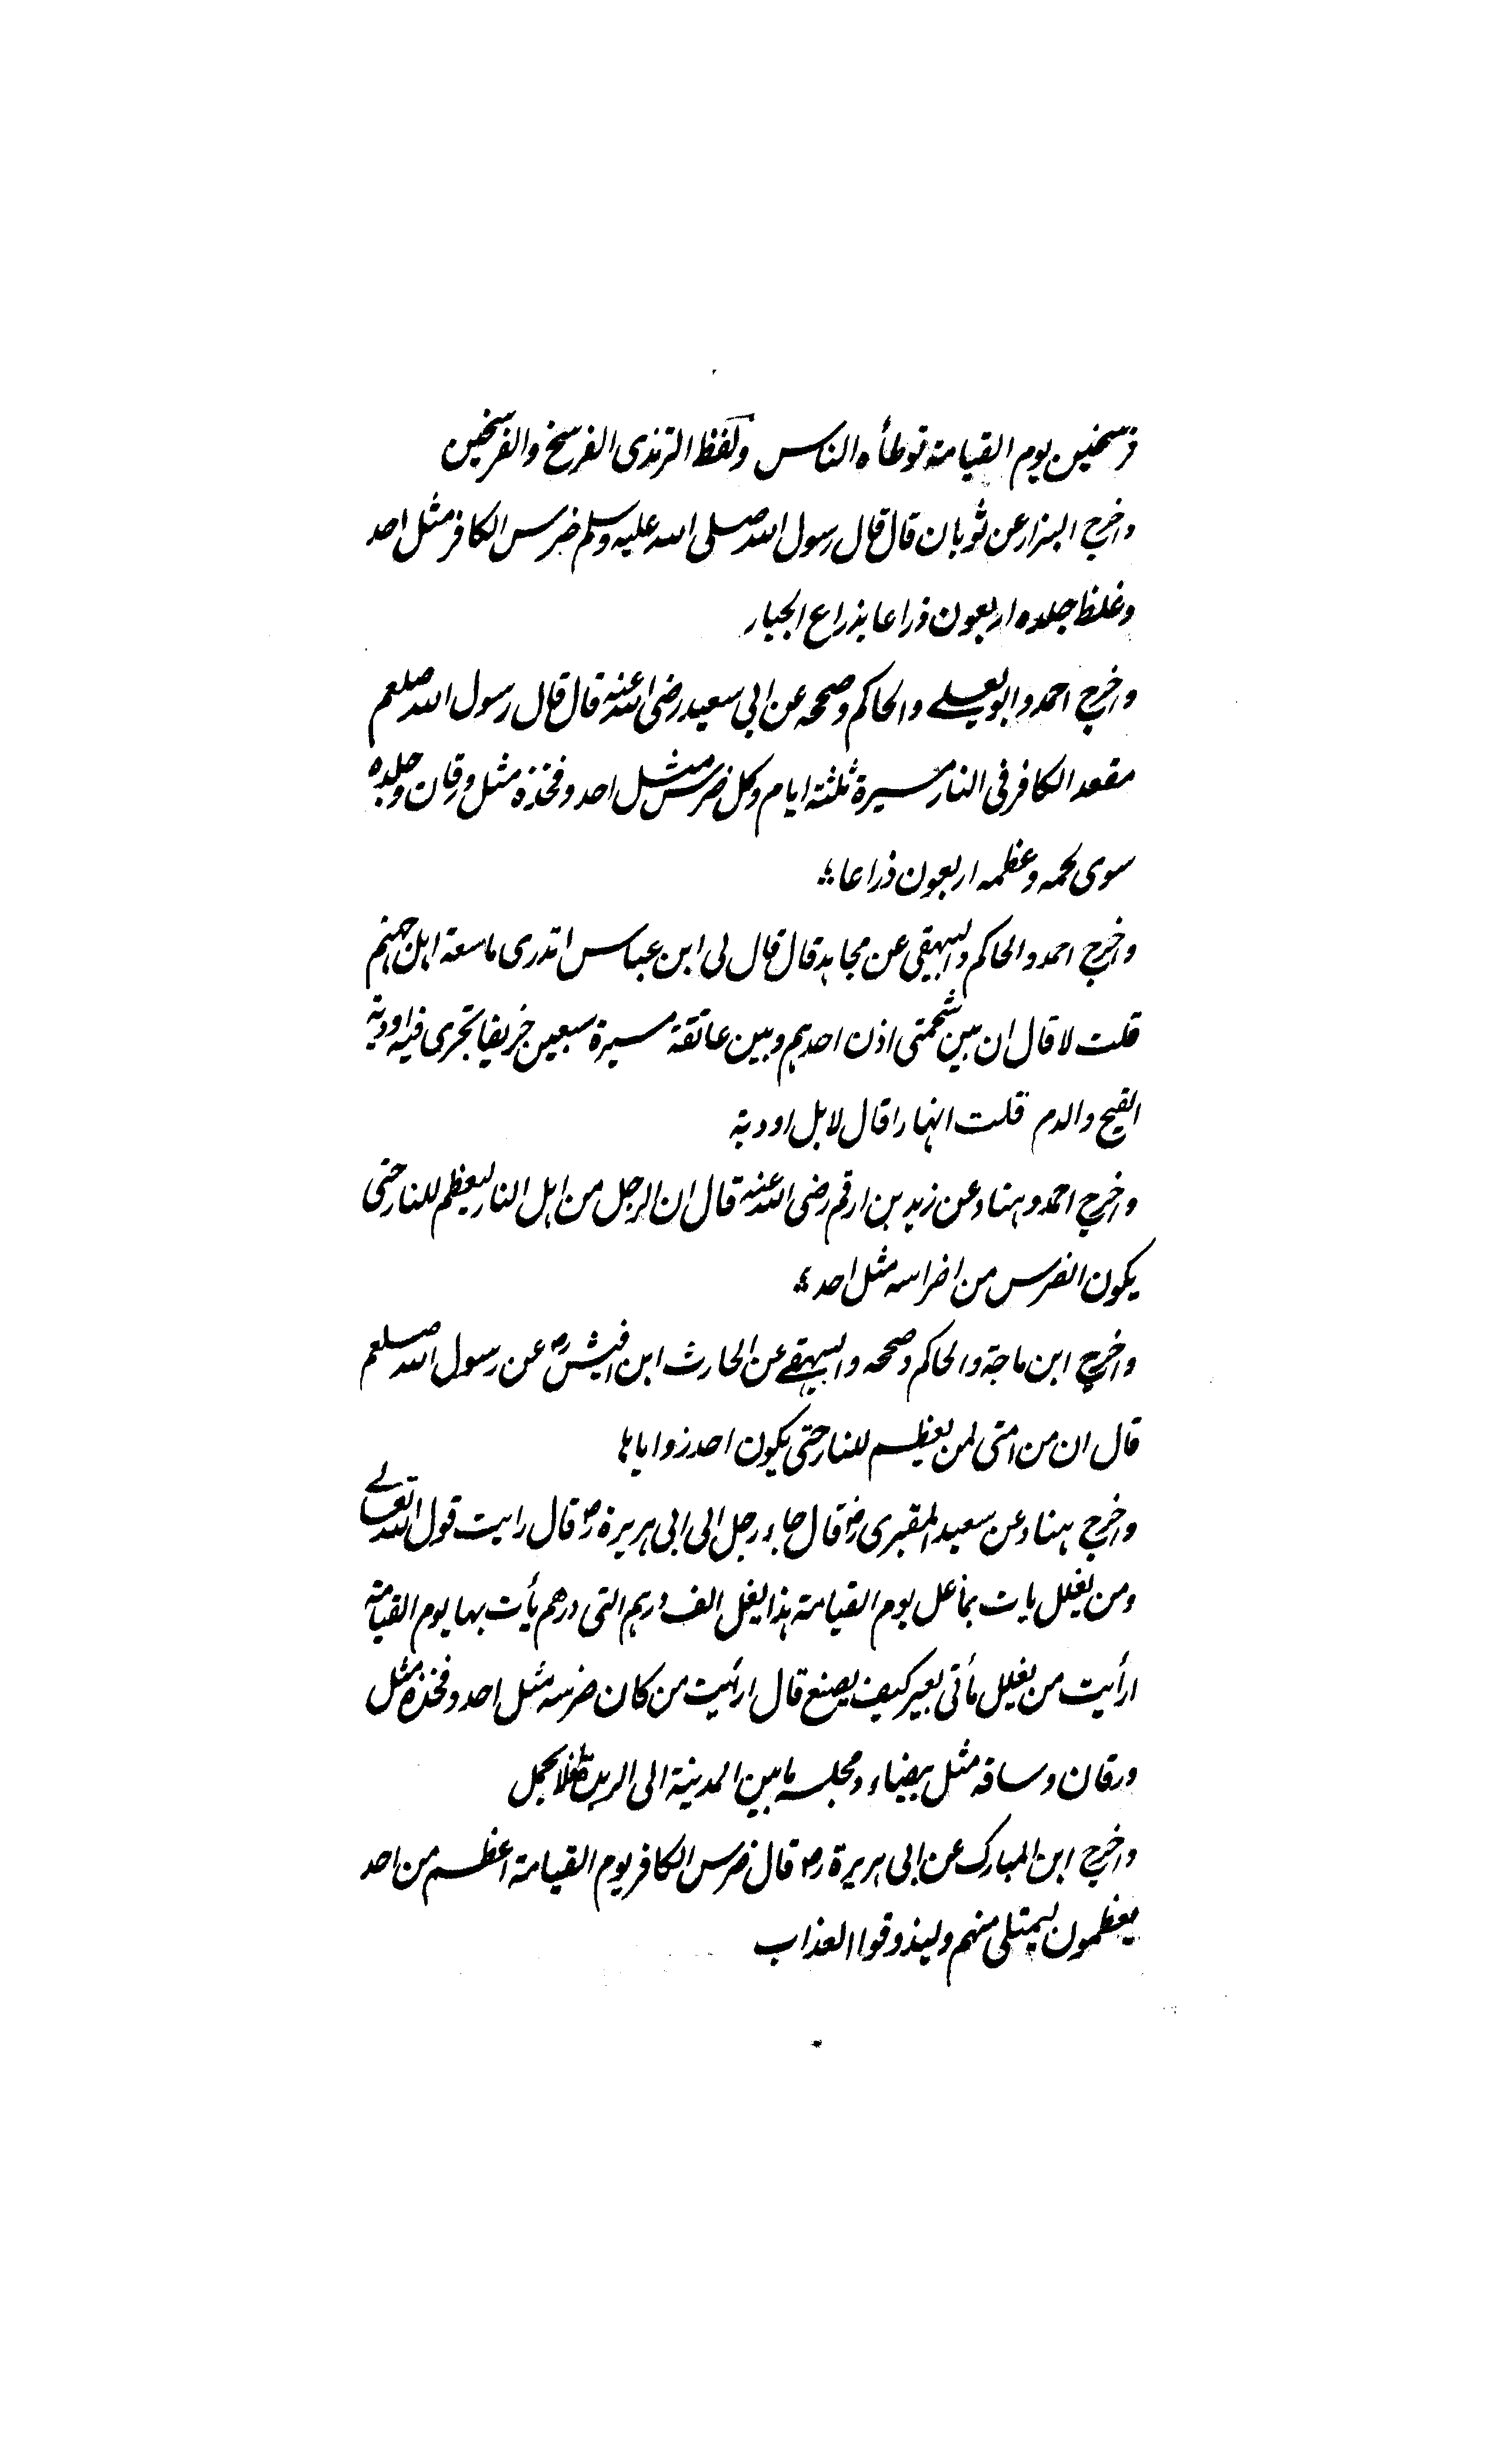 فرسخين يوم القيامة توطأه الناس ولفظ الترمذى الفرسخ والفرسخين
واخرج البزار عن ثوبان قال قال رسول الله صلى الله عليه وسلم ضرس الكافر مثل احد
وغلظ جلده اربعون ذراعا بذراع الجبار
واخرج احمد وابو يعلے والحاكم وصححه عن ابى سعيد رضى الله عنه قال قال رسول الله صلعم
مقعد الكافر فى النار مسيرة ثلثة ايام وكل ضرس مثل احد وفخذه مثل ورقان وجلده
سوى لحمه وعظمه اربعون ذراعا
واخرج احمد والحاكم والبيهقى عن مجاهد قال قال لى ابن عباس اتدرى ما سعة اهل جهنم
قلت لا قال ان بين شحمتى اذن احدهم وبين عاتقة مسيرة سبعين خريفا تجرى فيه اودية
القيح والدم قلت انهارا قال لا بل اودية
واخرج احمد وهناد عن زيد بن ارقم رضى الله عنه قال ان الرجل من اهل النار ليعظم للنار حتى
يكون الضرس من اضراسه مثل احد
واخرج ابن ماجة والحاكم وصححه والبيهقے عن الحارث ابن اقيش رض عن رسول الله صلعم
قال ان من امتى لمن يعظم للنار حتى يكون احد زواياها
واخرج هناد عن سعيد المقبرى رض قال جاء رجل الى ابى هريرة رض قال رايت قول الله تعالے
ومن يغلل يات بما غل يوم القيامة هذا يغل الف درهم التى درهم يأت بها يوم القيامة
ارأيت من يغلل مأتى بعير كيف يصنع قال ارئيت من كان ضرسه مثل احد وفخذه مثل
ورقان وساقه مثل بيضاء ومجلسه ما بين المدينة الى الربذة
واخرج ابن المبارك عن ابى هريرة رض قال ضرس الكافر يوم القيامة اعظم من احد
يعظمون ليمتلى منهم وليذوقوا العذاب